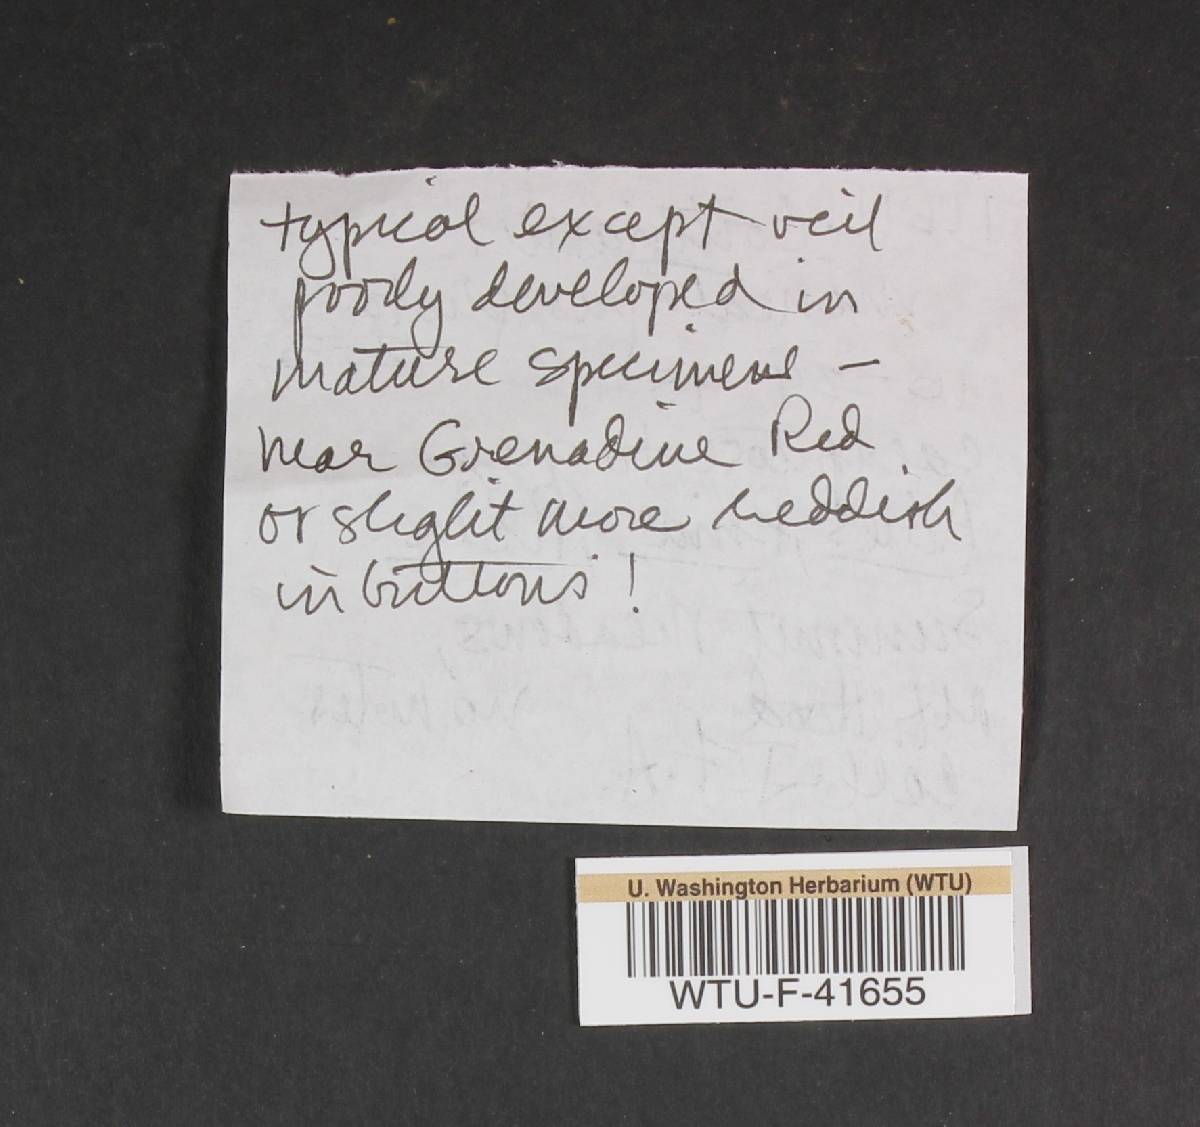 typical except veil
poorly developed in
mature specimens –
near Grenadine Red
or slight more reddish
in buttons!
U. Washington Herbarium (WTU)
WTU-F-41655